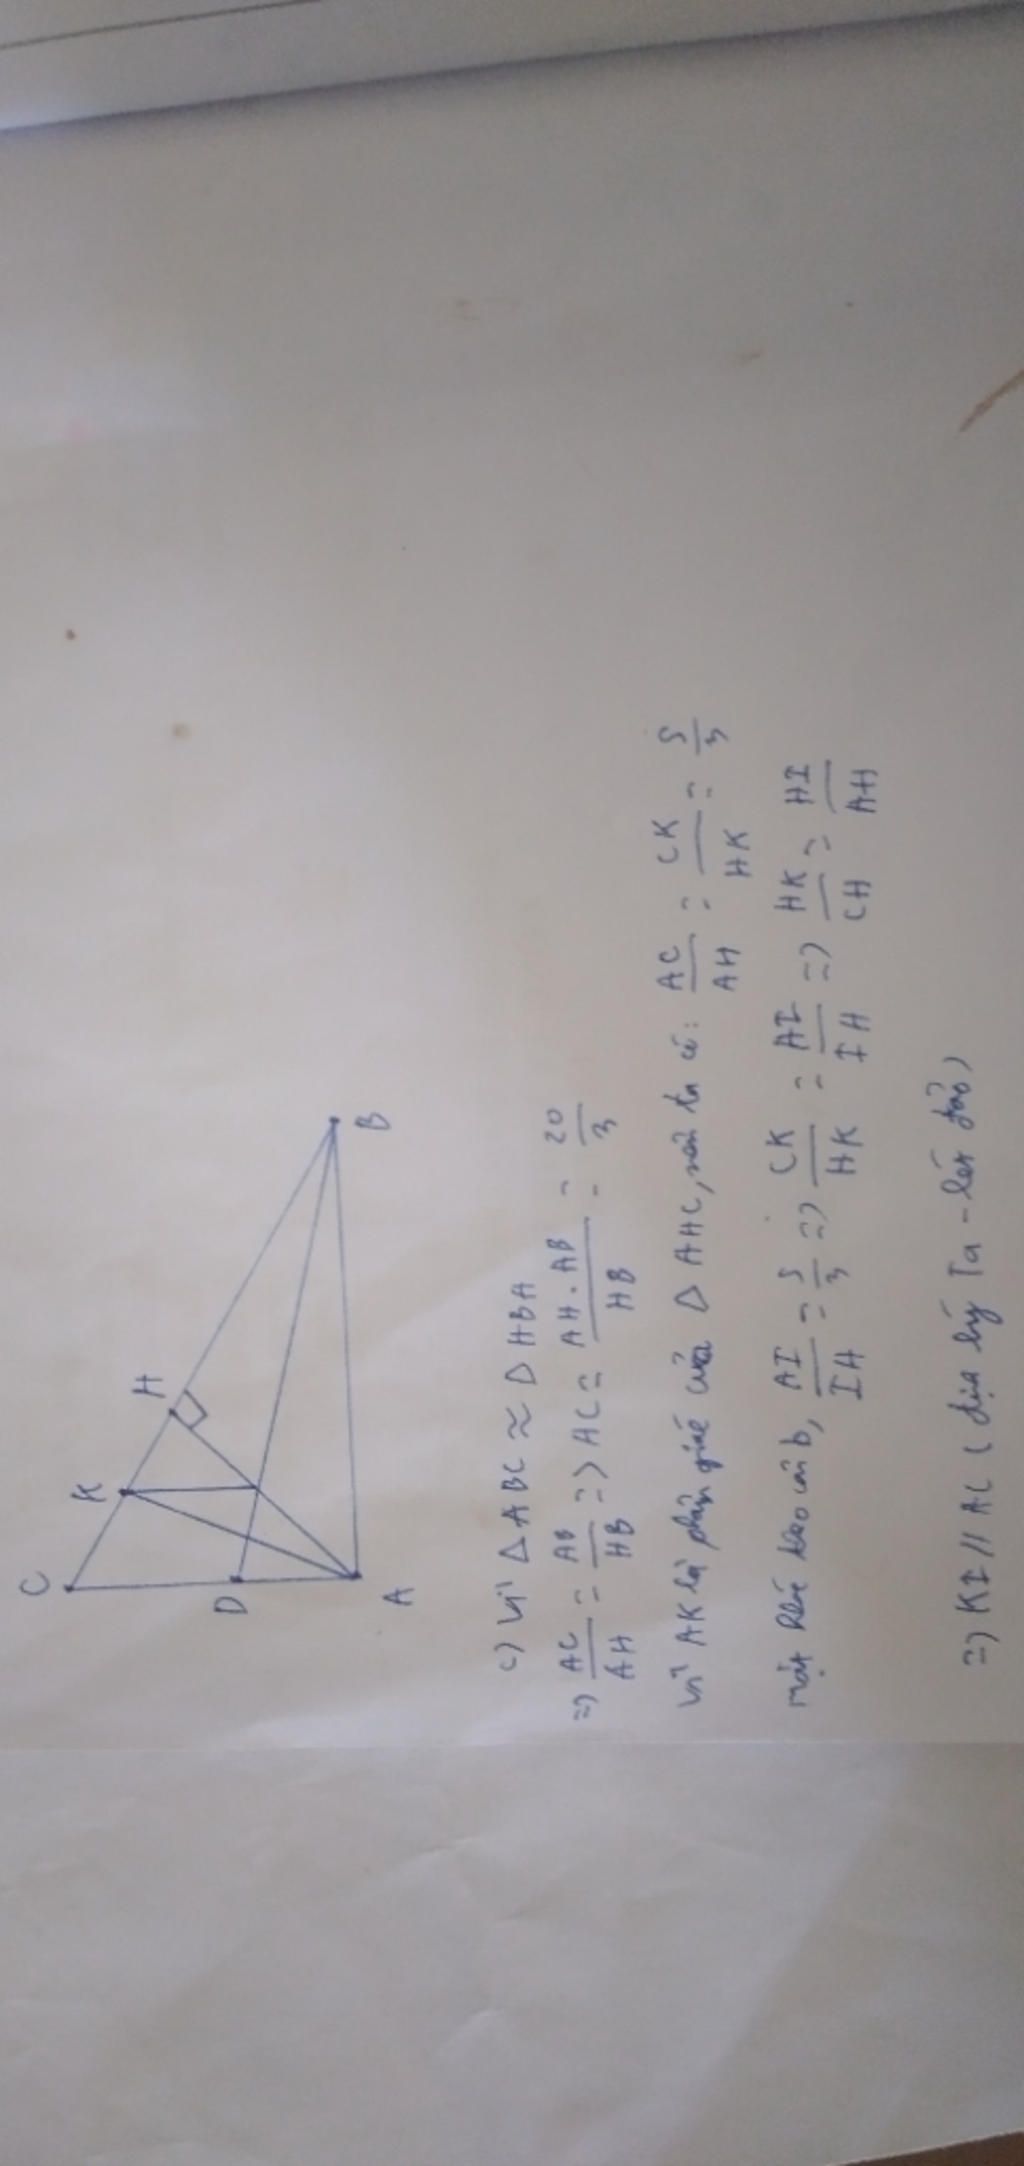 C
K
H
D
A
B
c) Vì Δ ABC ≈ Δ HBA
=) AC/AH = AB/HB =) AC = AH . AB/HB = 20/3
Vì AK là phân giác của Δ AHC, nên ta có: AC/AH = CK/HK = 5/3
mặt khác theo câu b, AI/IH = 5/3 =) CK/HK = AI/IH =) HK/CH = HI/AH
=) KI // AC ( định lý Ta - lét đảo)